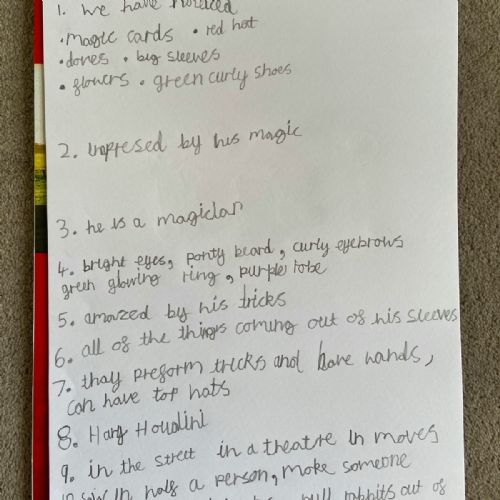 1. We have noticed
• magic cards • red hat
• doves • big sleeves
• flowers • green curly shoes
2. impresed by his magic
3. he is a magician
4. bright eyes, ponty beard, curly eyebrows
green glowing ring, purple robe
5. amazed by his tricks
6. all of the things coming out of his sleeves
7. thay preform tricks and have wands,
can have top hats
8. Hary Houdini
9. in the street in a theatre in moves
saw in half a person, make someone
pull rabbits out of